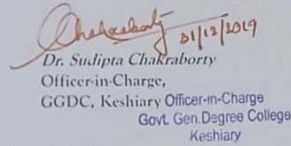 Chakraborty
31/12/2019
Dr. Sudipta Chakraborty
Officer-in-Charge,
GGDC, Keshiary Officer-in-Charge
Govt. Gen.Degree College
Keshiary